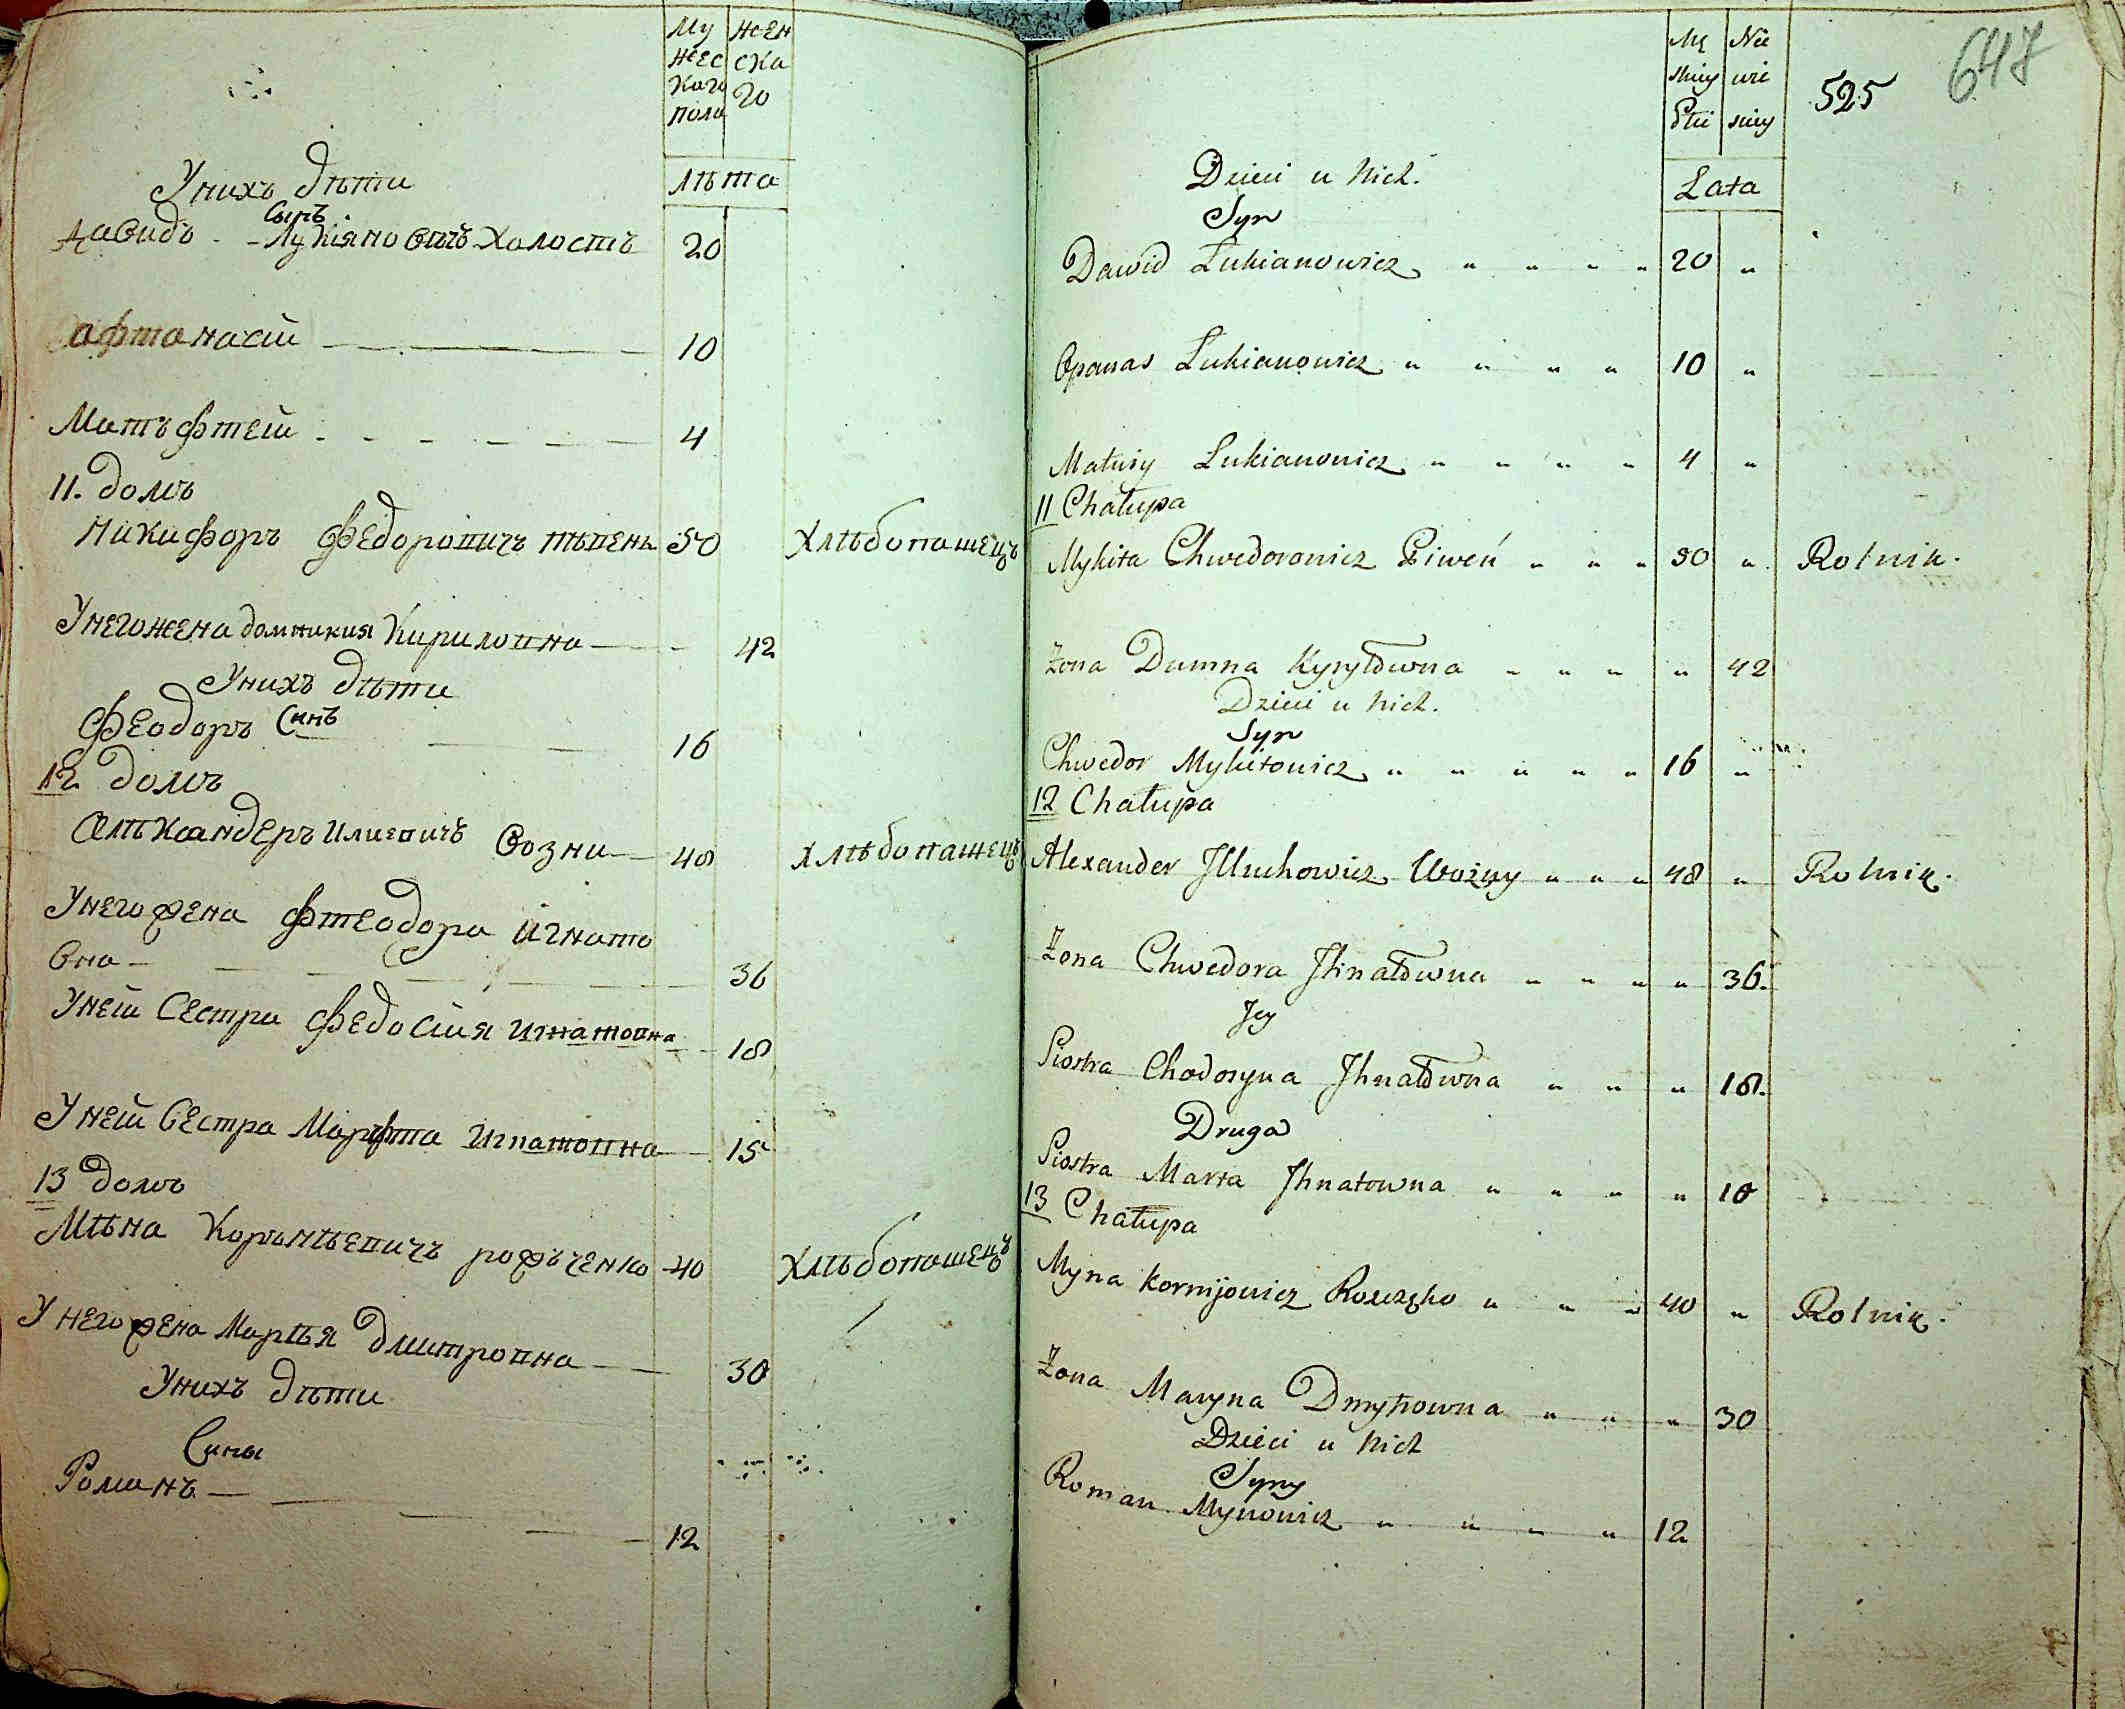 Му
жес
каго
пола
жен
ска
го
лѣта
Унихъ дѣти
Сынъ
Давидъ - Лукіяновичъ холостъ 20
афтанасій 10
Матъфтей 4
11. домъ
Никифоръ Федоровичъ пѣвень 50 Хлѣбопашецъ
Унего жена домникия Кириловна 42
Унихъ дѣти
Феодоръ Синъ 16
12 домъ
Алѣксандеръ Илиевичъ Возни 48 Хлѣбопашецъ
Унего жена Фтеодора Игнато
вна 36
Уней Сестра Федосия Игнатовна 18
Уней Сестра Марфта Игнатовна 15
13 домъ
Мѣна Корънѣевичъ рожъченко 40 Хлѣбопашецъ
Унего жена Марѣя Дмитровна 30
Унихъ дѣти
Сины
Романъ 12
Mę
skiey
Płci
Nie
wie
sciey
525
647
Lata
Dzieci u Nich.
Syn
Dawid Łukianowicz " " " " 20 "
Opanas Łukianowicz " " " " 10 "
Matwiy Łukianowicz " " " " 4 "
11 Chałupa
Mykita Chwedorowicz Piweń " " " 50 " Rolnik.
Żona Dumna Kyryłówna " " " " 42
Dzieci u Nich.
Syn
Chwedor Mykitowicz " " " " " 16 "
12 Chałupa
Alexander Illuchowicz Woźny " " " 48 " Rolnik.
Żona Chwedora Ihnatówna " " " " 36.
Jey
Siostra Chodosyna Ihnatówna " " " 18.
Druga
Siostra Marta Ihnatowna " " " " 10
13 Chałupa
Myna Kornijowicz " " " 40 " Rolnik.
Żona Maryna Dmytrowna " " " 30
Dzieci u Nich
Syny
Roman Mynowicz " " " " 12